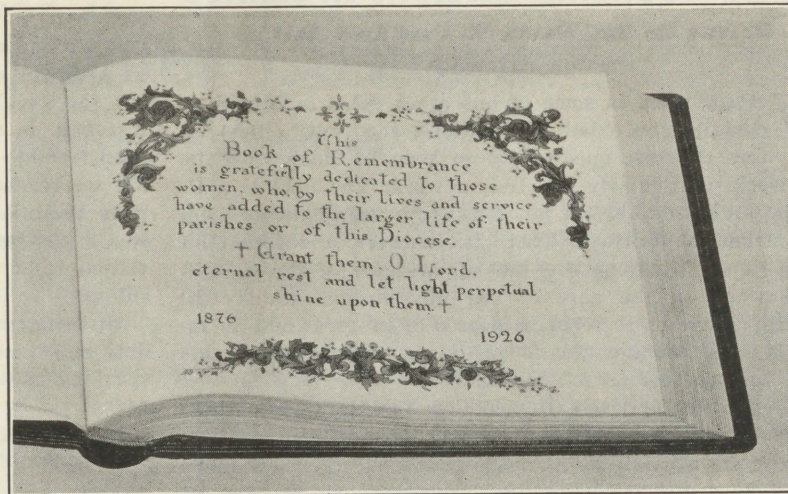 This
Book of Remembrance
is gratefully dedicated to those
women, who, by their lives and service
have added to the larger life of their
parishes or of this Diocese.
† Grant them, O Lord,
eternal rest and let light perpetual
shine upon them. †
1876
1926